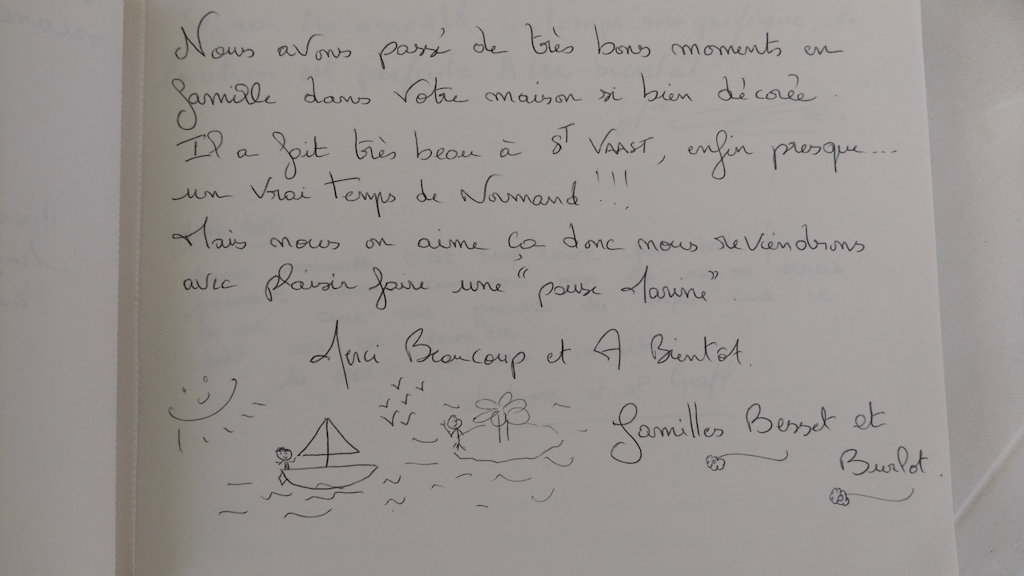 Nous avons passé de très bons moments en
famille dans votre maison si bien décorée.
Il a fait très beau à ST VAAST, enfin presque...
un vrai temps de Normand !!!
Mais nous on aime ça donc nous reviendrons
avec plaisir faire une "pause Marine".
Merci Beaucoup et A Bientot.
Familles Besset et
Burlot.